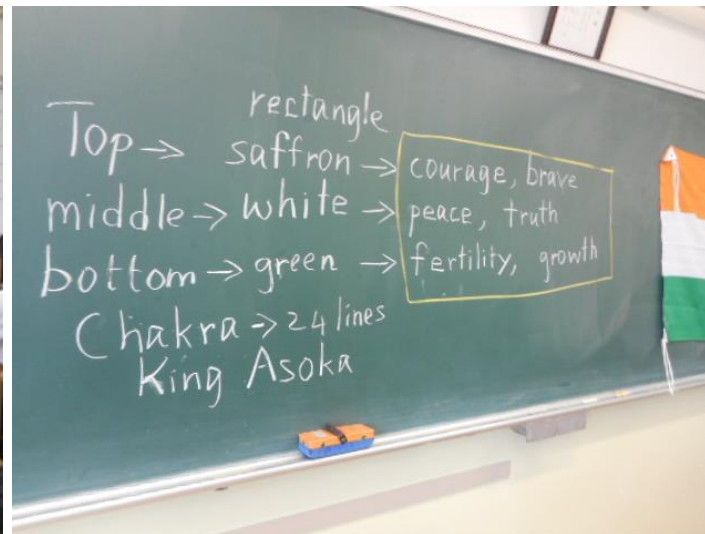 rectangle
Top → saffron → courage, brave
middle → white → peace, truth
bottom → green → fertility, growth
Chakra → 24 lines
King Asoka